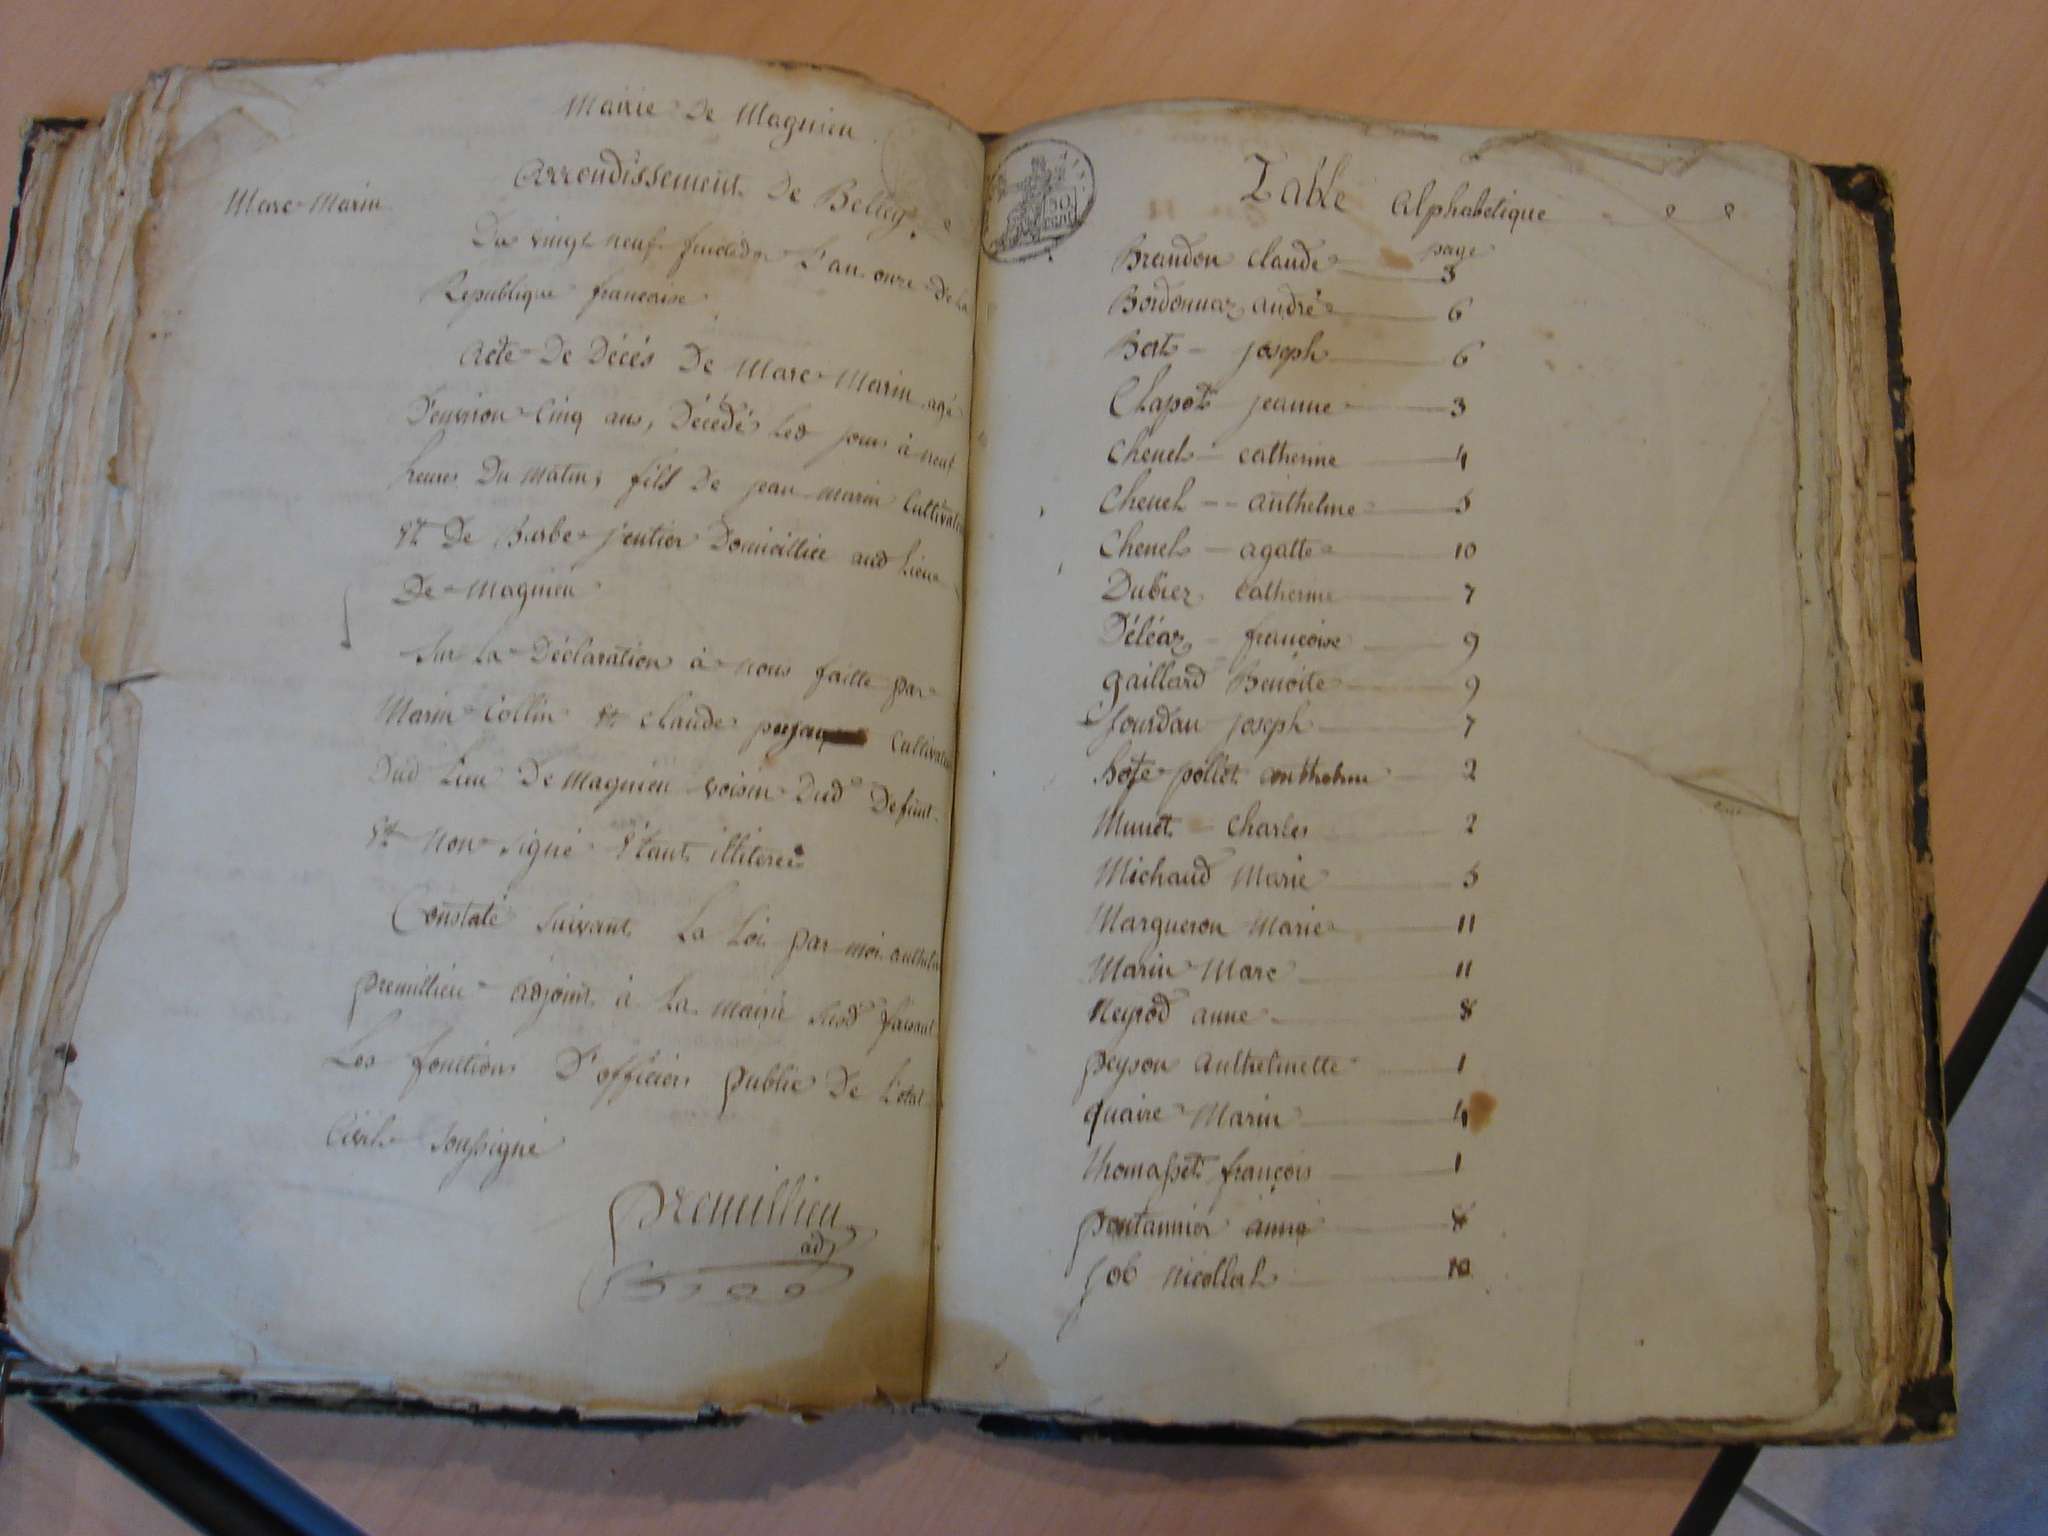 Mairie De Magnieu
Arrondissement De Belley
Marc Marin
Du vingt neuf fructidor L'an onze De La
Republique francaise
Acte De Décés De Marc Marin agé
D'environ Cinq ans, Décédé Led jour à neuf
heures Du Matin, fils De jean marin Cultivateur
Et De Barbe jentier Domicilliée aud Lieu
De Magnieu
Sur La Déclaration à nous faitte par
Marin Collin Et Claude Cultivateur
Dud Lieu De Magnieu voisin Dud Defunt
Et non Signé Etant illiteré
Constaté Suivant La Loi par moi anthelme
premillieu adjoint à La mairie Susd faisant
Les fonctions D'officier public De L'etat
Civil Soussigné
premillieu
adj
50
Table Alphabétique
page
Brandon Claude 3
Bordonnaz andré 6
Bert joseph 6
Chapot jeanne 3
Chenel catherine 4
Chenel anthelme 5
Chenel agatte 10
Dubiez Catherine 7
Déléaz françoise 9
gaillard Benoite 9
Jourdan joseph 7
hote pollet anthelme 2
Munet Charles 2
Michaud Marie 5
Margueron Marie 11
Marin Marc 11
Neyrod anne 8
peyson anthelmette 1
quaire Marin 4
thomasset françois 1
pontannier anne 8
job nicollas 10